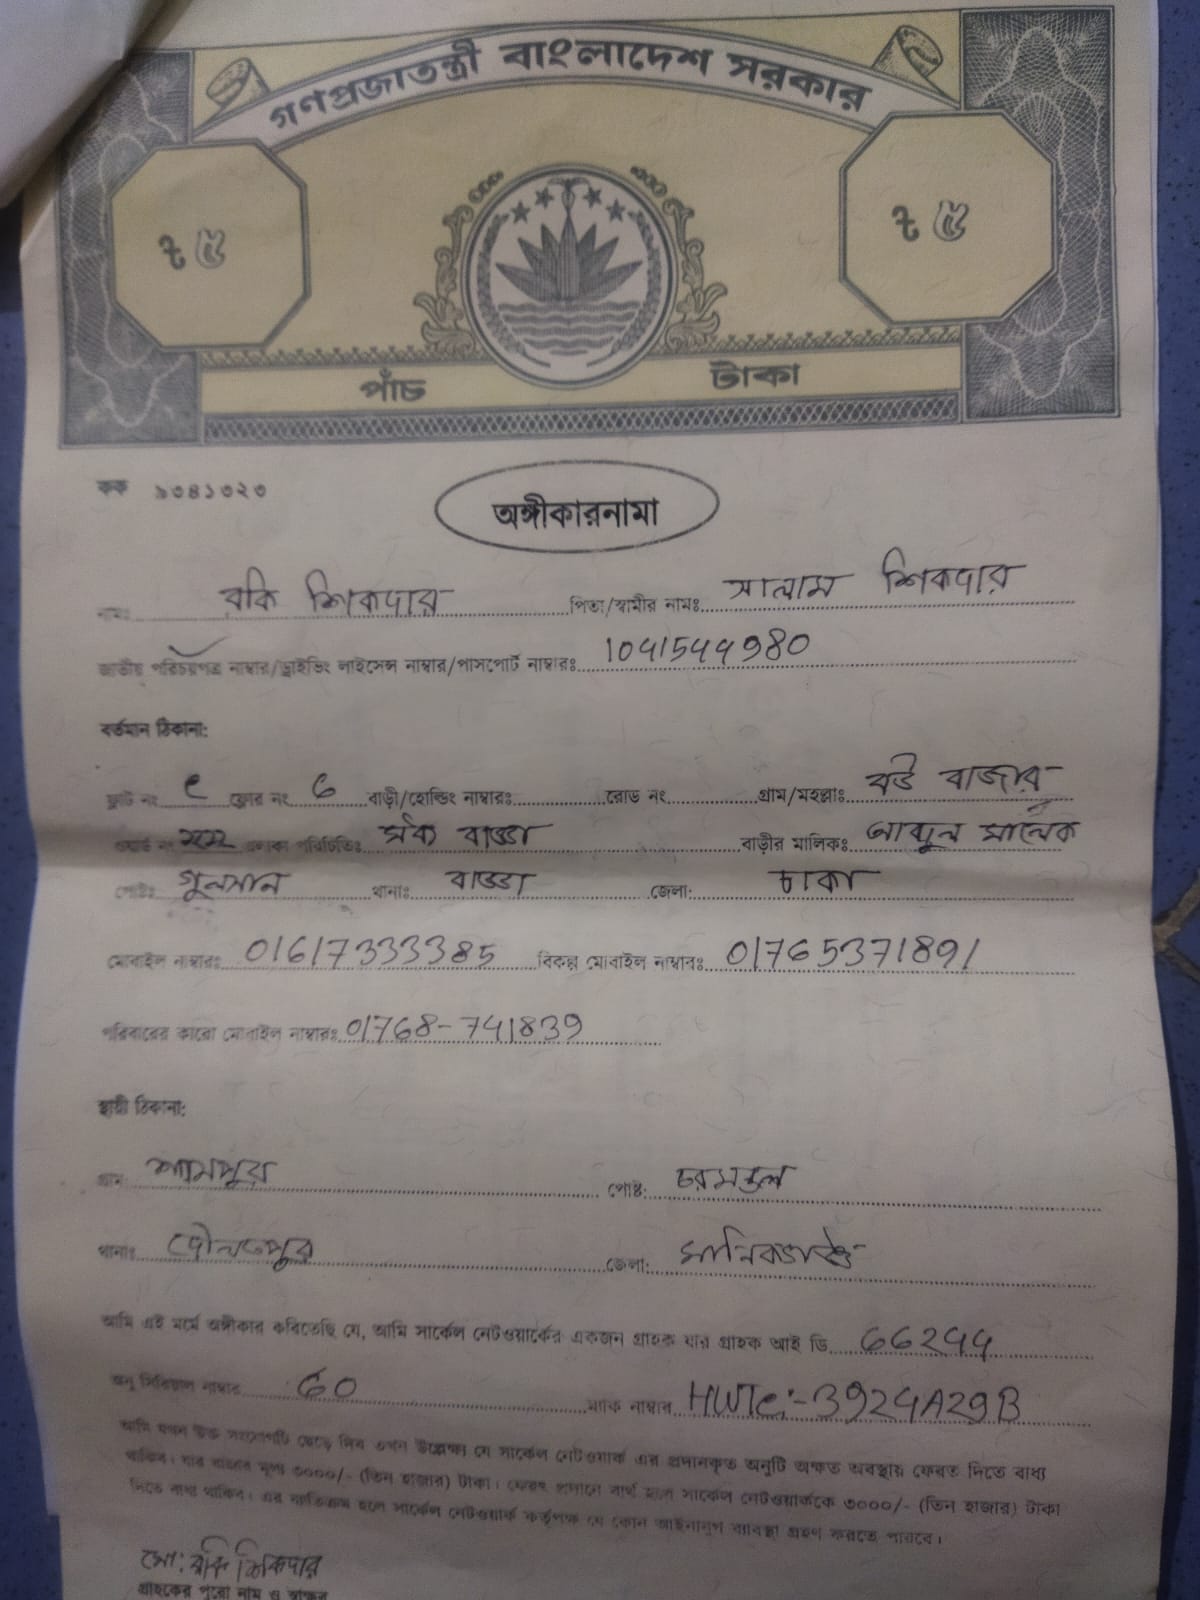 গণপ্রজাতন্ত্রী বাংলাদেশ সরকার
৳ ৫ ৳ ৫
পাঁচ টাকা
কক ৯৩৪১৩২৩
অঙ্গীকারনামা
নামঃ রকি শিকদার পিতা/স্বামীর নামঃ সালাম শিকদার
জাতীয় পরিচয়পত্র নাম্বার/ড্রাইভিং লাইসেন্স নাম্বার/পাসপোর্ট নাম্বারঃ 1041544980
বর্তমান ঠিকানা:
ফ্লাট নং ফ্লোর নং 6 বাড়ী/হোল্ডিং নাম্বারঃ রোড নং গ্রাম/মহল্লাঃ বউ বাজার
ওয়ার্ড নং এলাকা পরিচিতিঃ বাড্ডা বাড়ীর মালিকঃ আব্দুল মালেক
পোষ্টঃ গুলশান থানাঃ বাড্ডা জেলা: ঢাকা
মোবাইল নাম্বারঃ 01617333385 বিকল্প মোবাইল নাম্বারঃ 01765371891
পরিবারের কারো মোবাইল নাম্বারঃ 01768-741839
স্থায়ী ঠিকানা:
গ্রাম: শ্যামপুর পোষ্ট:
থানাঃ দৌলতপুর জেলা: মানিকগঞ্জ
আমি এই মর্মে অঙ্গীকার করিতেছি যে, আমি সার্কেল নেটওয়ার্কের একজন গ্রাহক যার গ্রাহক আই ডি 66244
অনু সিরিয়াল নাম্বার 60 ম্যাক নাম্বার HWTC:-3924A29B
আমি যখন উক্ত সংযোগটি ছেড়ে দিব তখন উল্লেখ্য যে সার্কেল নেটওয়ার্ক এর প্রদানকৃত অনুটি অক্ষত অবস্থায় ফেরত দিতে বাধ্য
থাকিব। যার বাজার মূল্য ৩০০০/- (তিন হাজার) টাকা। ফেরৎ প্রদানে ব্যর্থ হলে সার্কেল নেটওয়ার্ককে ৩০০০/- (তিন হাজার) টাকা
দিতে বাধ্য থাকিব। এর ব্যতিক্রম হলে সার্কেল নেটওয়ার্ক কর্তৃপক্ষ যে কোন আইনানুগ ব্যাবস্থা গ্রহণ করতে পারবে।
মো: রকি শিকদার
গ্রাহকের পুরো নাম ও স্বাক্ষর